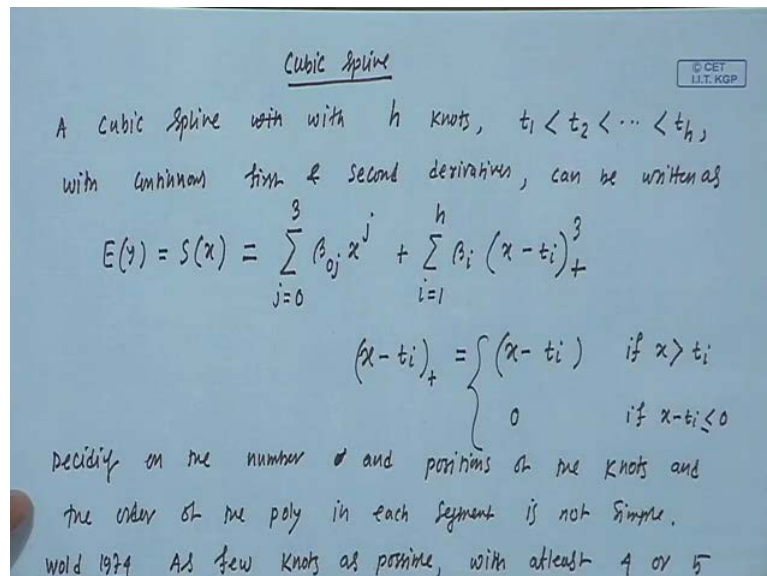 Cubic Spline
© CET
I.I.T. KGP
A Cubic Spline with with h Knots, t₁ < t₂ < ⋯ < tₕ,
with continuous first & second derivatives, can be written as
E(y) = S(x) = ∑_{j=0}^{3} β₀ⱼ x^j + ∑_{i=1}^{h} βᵢ (x - tᵢ)₊³
(x - tᵢ)₊ = { (x - tᵢ) if x > tᵢ
0 if x - tᵢ ≤ 0
Deciding on the number and positions of the Knots and
the order of the poly in each segment is not simple.
Wold 1974 As few Knots as possible, with atleast 4 or 5